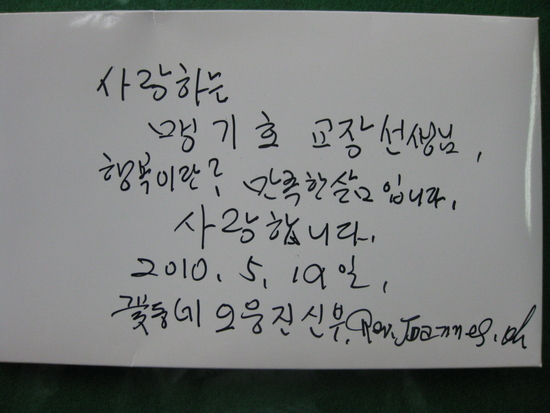 사랑하는
맹기호 교장선생님,
행복이란? 만족한 삶입니다.
사랑합니다.
2010. 5. 19일,
꽃동네 오웅진신부. Rev.